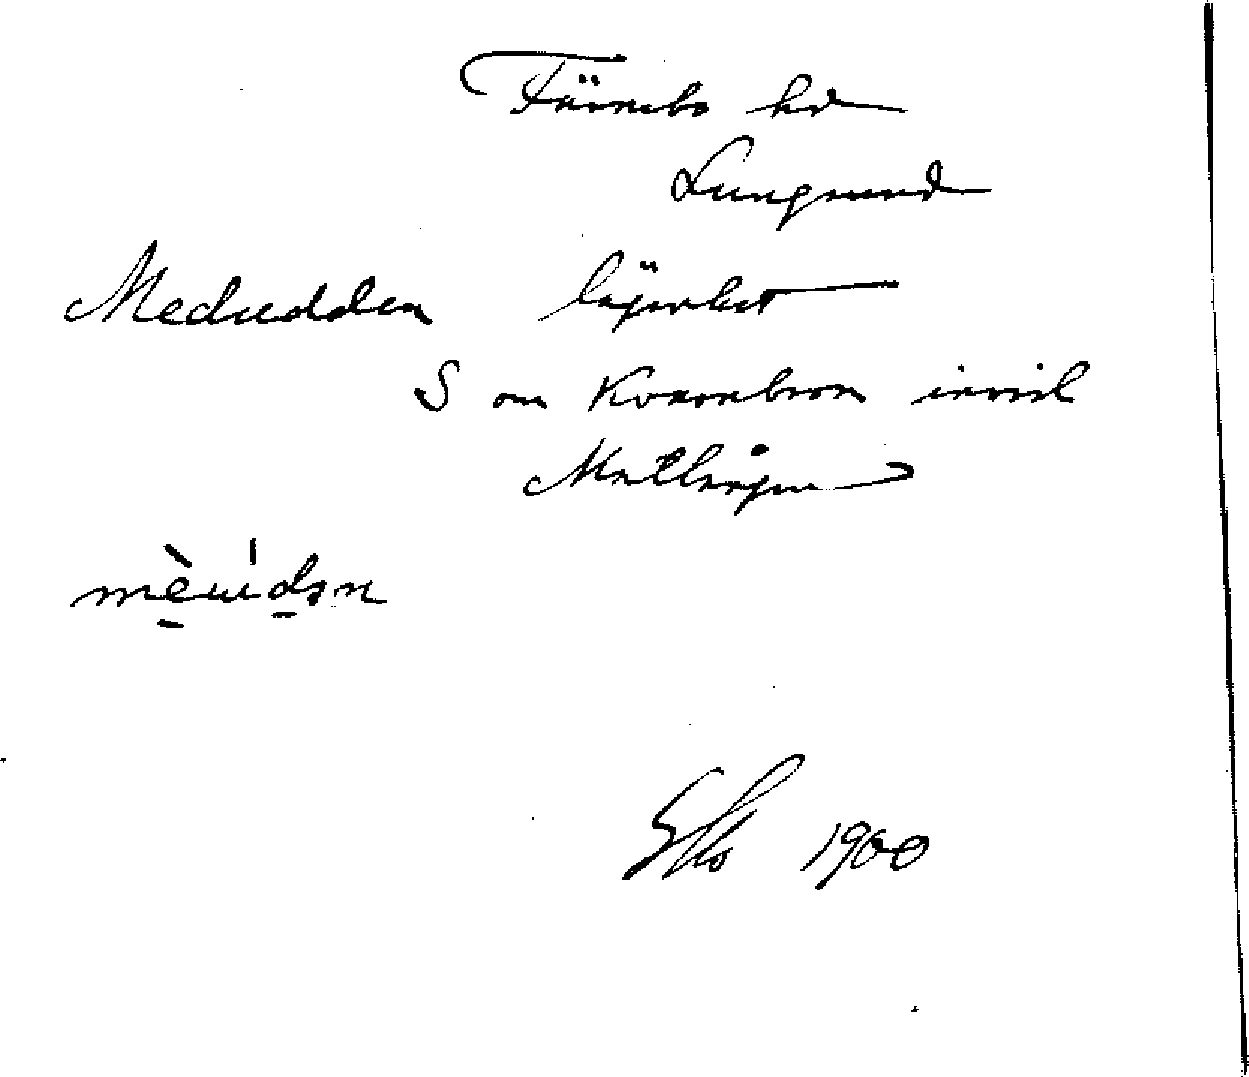 Färnebo hd
Lungsund
Medudden lägenhet
S om Kvarnbron invid
Mellsjön
mèu̍dən
1900